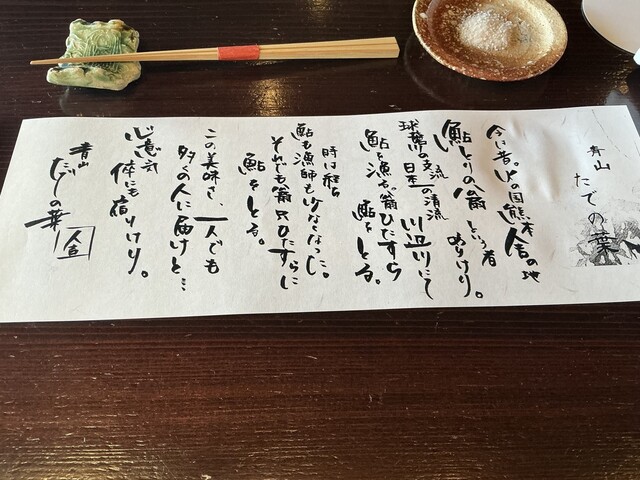 青山
たでの葉
今は昔。火の国熊本舎の地
鮎とりの翁という者
ありけり。
球磨川の支流
日本一の清流
川辺川にて
鮎を漁る翁ひたすら
鮎をとる。
時は経ち
鮎も漁師も少なくなった。
それでも翁只ひたすらに
鮎をとる。
この美味さ、一人でも
多くの人に届けと…
心意気
体にも宿りけり。
青山
たでの葉